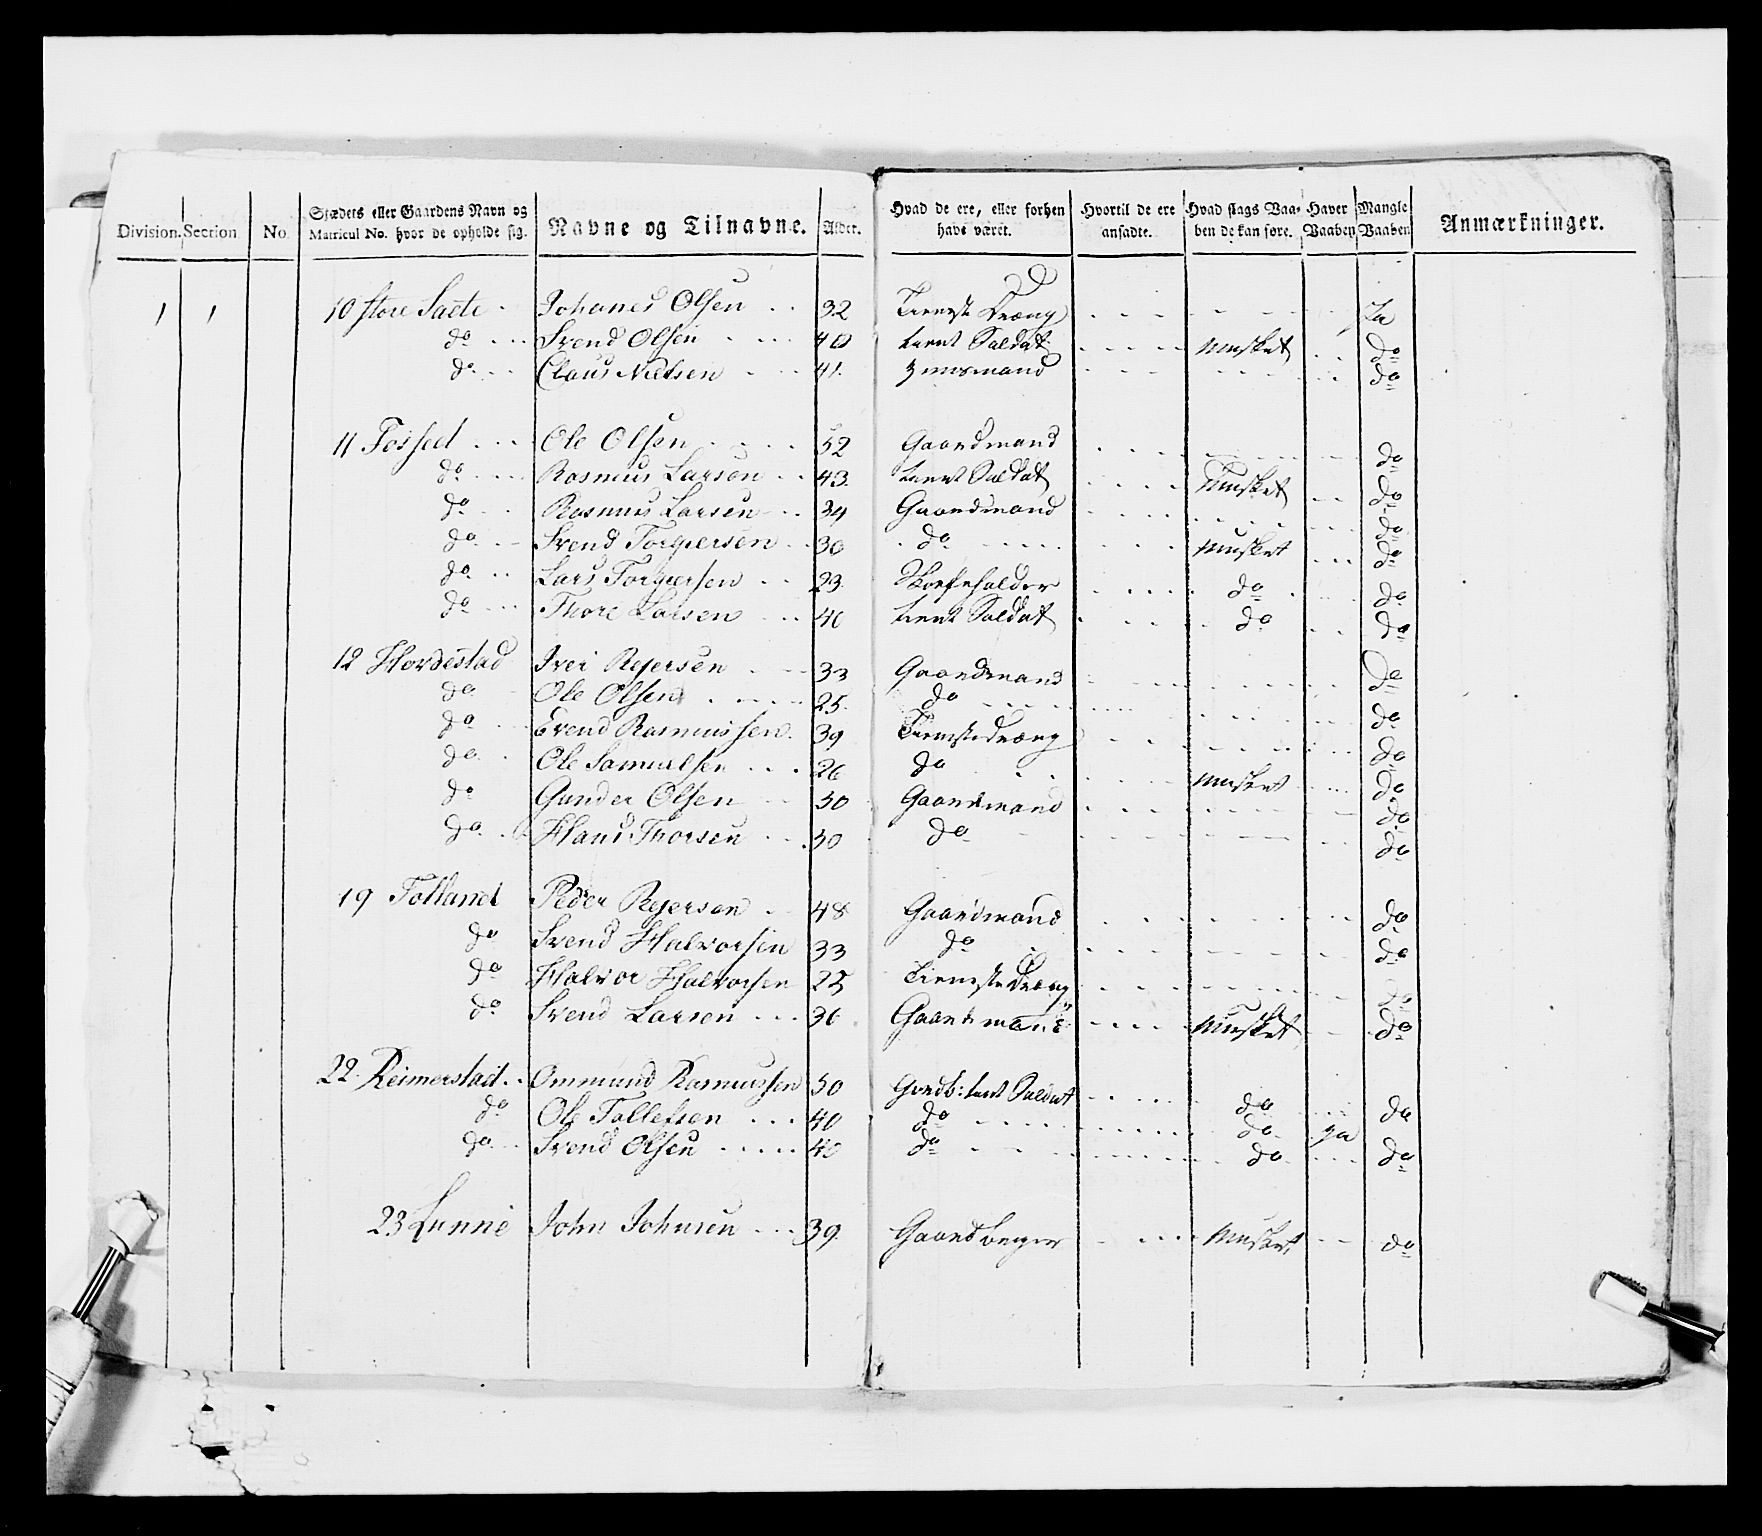 Division. Section No. Stædets eller Gaardens Navn og Matricul No. hvor de opholde sig. Navne og Tilnavne. Alder. Hvad de ere, eller forhen have været. Hvortil de ere ansadte. Hvad slags Vaaben de kan føre. Haver Vaaben Mangle Vaaben Anmærkninger.
1 1 10 Store Saete Johanes Olsen 32 Tieneste Dræng Ja
do Svend Olsen 40 tient Soldat Musket do
do Claus Nielsen 41 do
11 Fossed Ole Olsen 52 Gaardmand do
do Rasmus Larsen 43 tient Soldat Musket do
do Rasmus Larsen 34 Gaardmand do
do Svend Torgiersen 30 do Musket do
do Lars Torgiersen 23 do do
do Thore Larsen 40 tient Soldat do do
12 Hovdestad Iver Rejersen 33 Gaardmand do
do Ole Olsen 25 do do
do Evend Rasmussen 39 Tienestedræng do
do Ole Samuelsen 26 do Musket do
do Gunder Olsen 50 Gaardmand do
do Hans Thorsen 30 do do
19 Tolland Peder Rejersen 48 Gaardmand do
do Svend Halvorsen 33 do do
do Halvor Halvorsen 25 Tienestedræng do
do Svend Larsen 36 Gaardmand Musket do
22 Reimerstad Ommund Rasmussen 50 Gardb: tient Soldat do do
do Ole Tollefsen 40 do do Ja
do Svend Olsen 40 do do do
23 Lunne John Johnsen 39 Gaardbruger Musket do